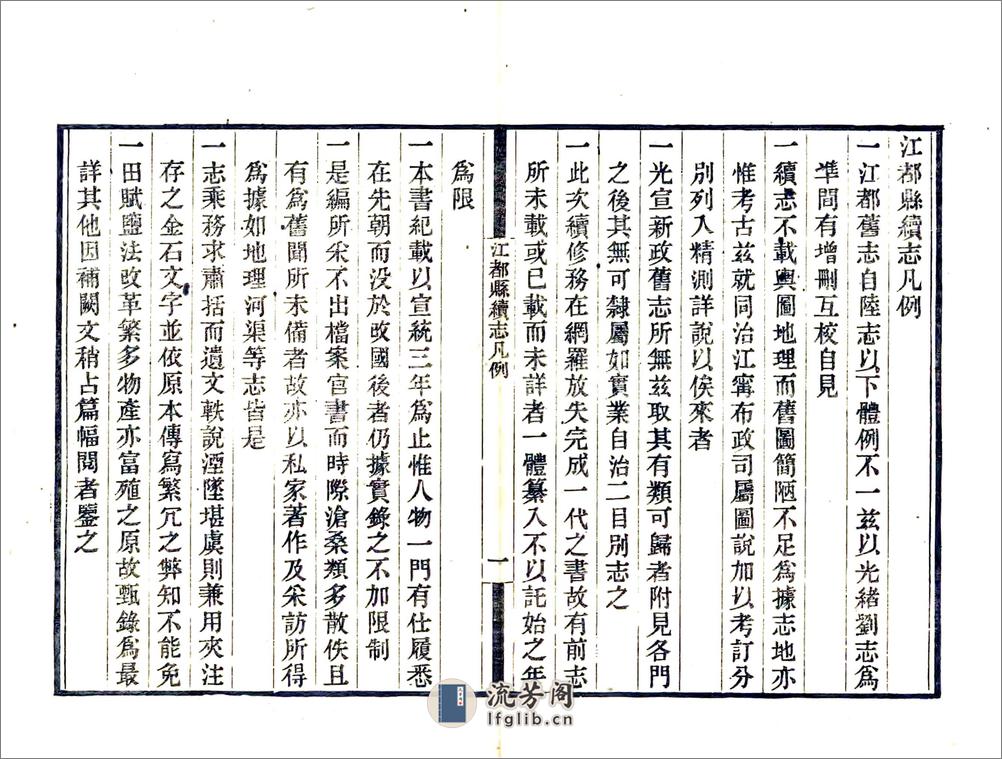 江都縣續志凡例
一江都舊志自陸志以下體例不一茲以光緒劉志爲
準間有增刪互校自見
一續志不載輿圖地理而舊圖簡陋不足爲據志地亦
惟考古茲就同治江甯布政司屬圖說加以考訂分
別列入精測詳說以俟來者
一光宣新政舊志所無茲取其有類可歸者附見各門
之後其無可隸屬如實業自治二目別志之
一此次續修務在網羅放失完成一代之書故有前志
所未載或已載而未詳者一體纂入不以託始之年
江都縣續志凡例
一
爲限
一本書紀載以宣統三年爲止惟人物一門有仕履悉
在先朝而没於改國後者仍據實錄之不加限制
一是編所采不出檔案官書而時際滄桑類多散佚且
有爲舊聞所未備者故亦以私家著作及采訪所得
爲據如地理河渠等志皆是
一志乘務求肅括而遺文軼說湮墜堪虞則兼用夾注
存之金石文字並依原本傳寫繁冗之弊知不能免
一田賦鹽法改革繁多物產亦富殖之原故甄錄爲最
詳其他因補闕文稍占篇幅閱者鑒之
流芳阁
lfglib.cn